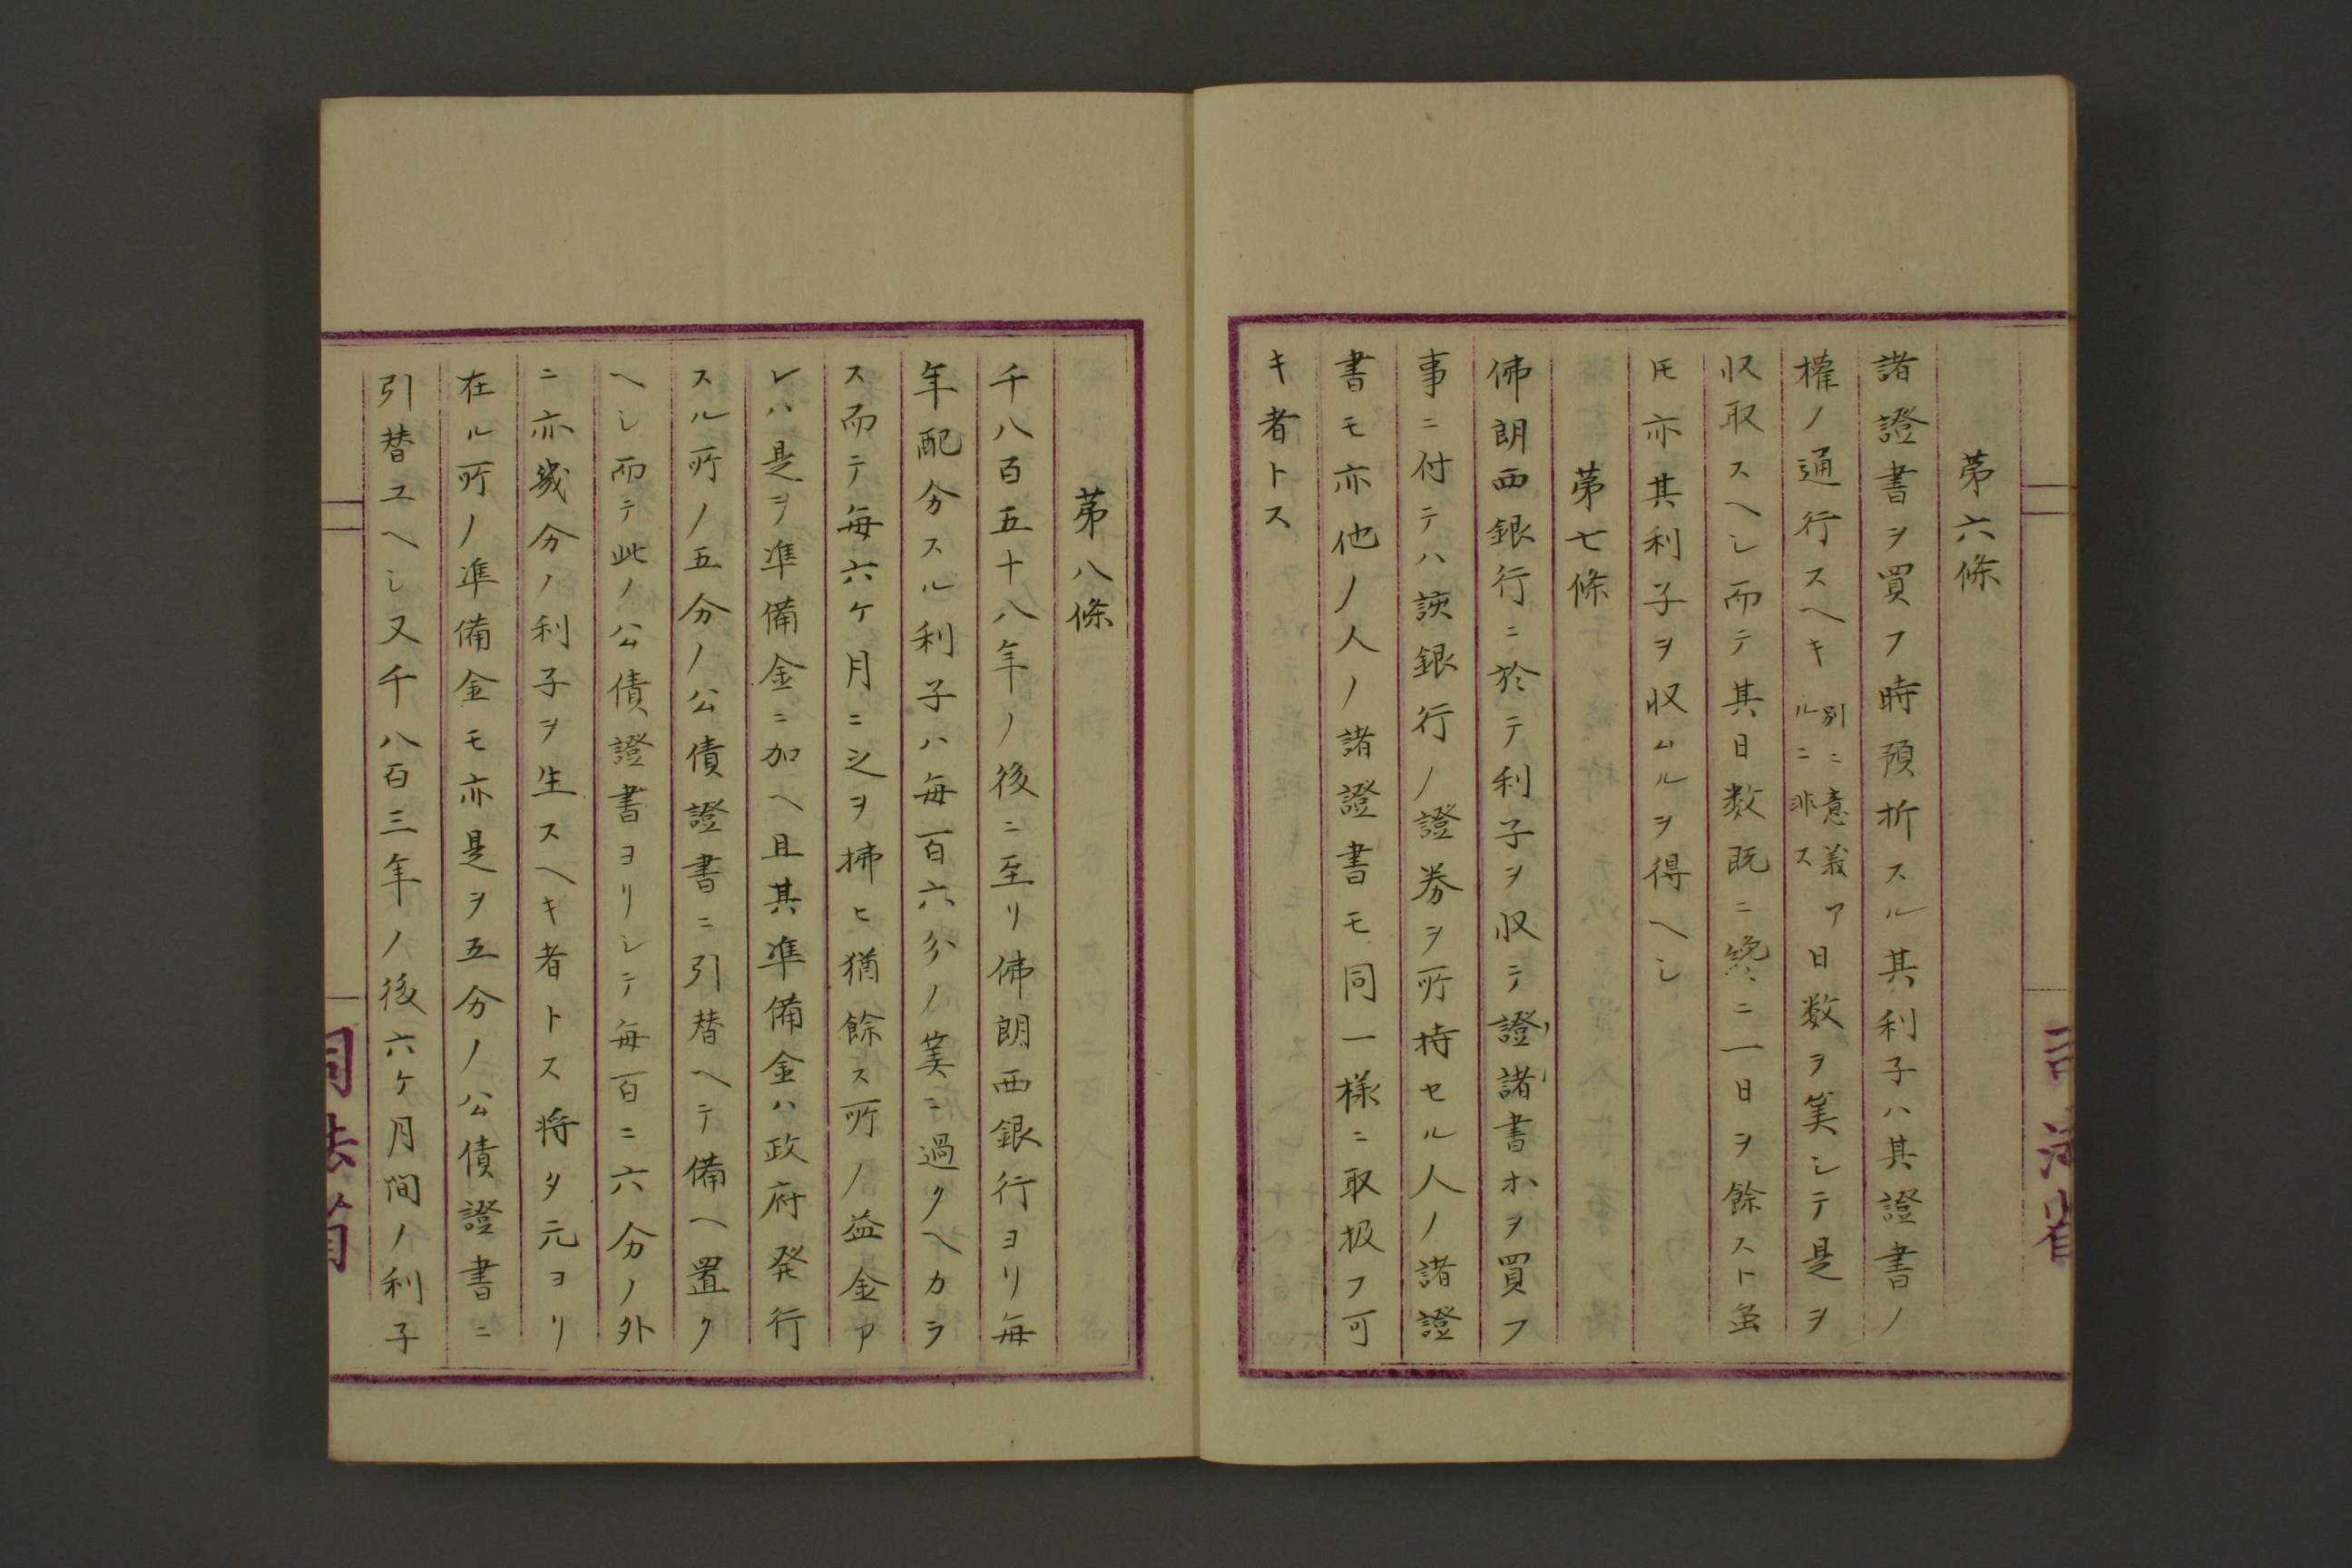 第六條
諸證書ヲ買フ時預折スル其利子ハ其證書ノ
權ノ通行スヘキ別ニ意義アルニ非ス日数ヲ筭シテ是ヲ
収取スヘシ而テ其日数既ニ終ニ一日ヲ餘スト虽
㕝亦其利子ヲ収ムルヲ得ヘシ
第七條
佛朗西銀行ニ於テ利子ヲ収テ證諸書ホヲ買フ
事ニ付テハ該銀行ノ證券ヲ所持セル人ノ諸證
書モ亦他ノ人ノ諸證書モ同一様ニ取扱フ可
キ者トス
司法省
第八條
千八百五十八年ノ後ニ至リ佛朗西銀行ヨリ毎
年配分スル利子ハ毎百六分ノ筭ニ過クヘカラ
ス而テ毎六ケ月ニ之ヲ拂ヒ猶餘ス所ノ益金ア
レハ是ヲ準備金ニ加ヘ且其準備金ハ政府発行
スル所ノ五分ノ公債證書ニ引替ヘテ備ヘ置ク
ヘシ而テ此ノ公債證書ヨリシテ毎百ニ六分ノ外
ニ亦幾分ノ利子ヲ生スヘキ者トス将タ元ヨリ
在ル所ノ準備金モ亦是ヲ五分ノ公債證書ニ
引替ユヘシ又千八百三年ノ後六ケ月間ノ利子
司法省